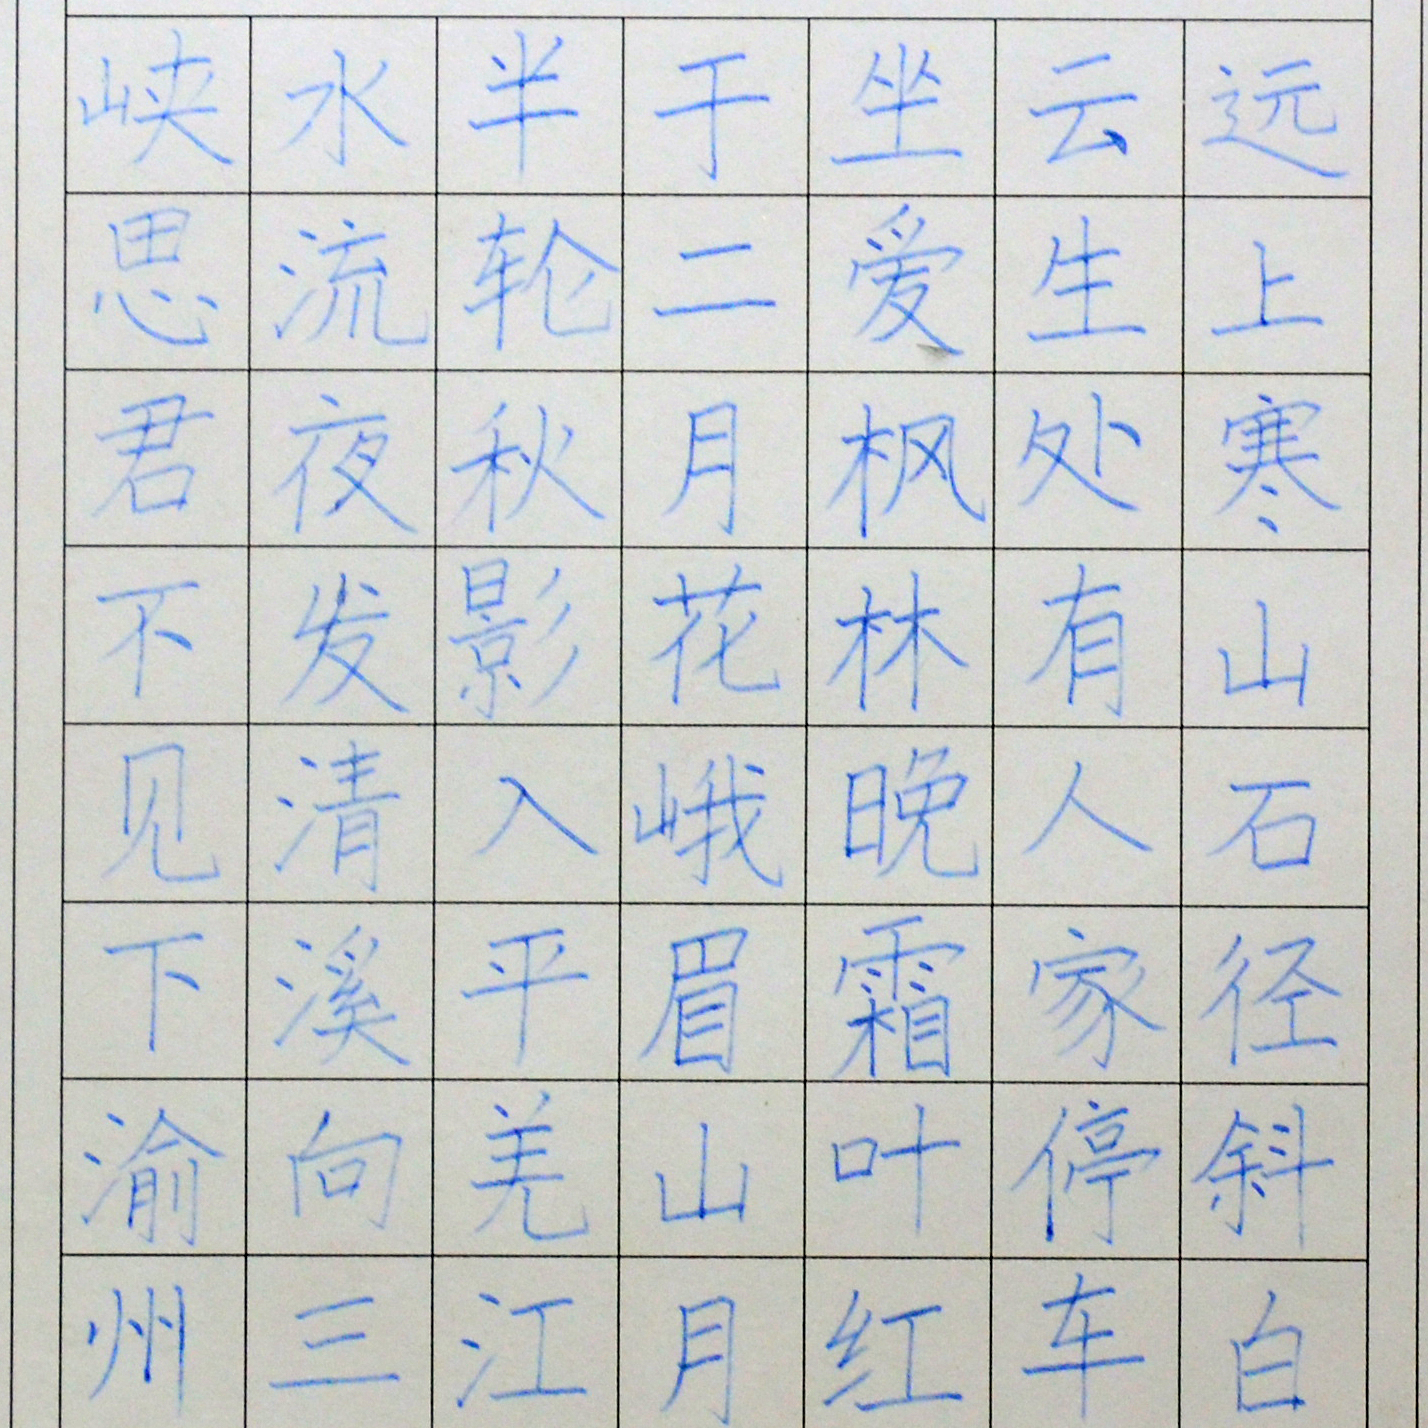 远上寒山石径斜白
云生处有人家停车
坐爱枫林晚霜叶红
于二月花峨眉山月
半轮秋影入平羌江
水流夜发清溪向三
峡思君不见下渝州